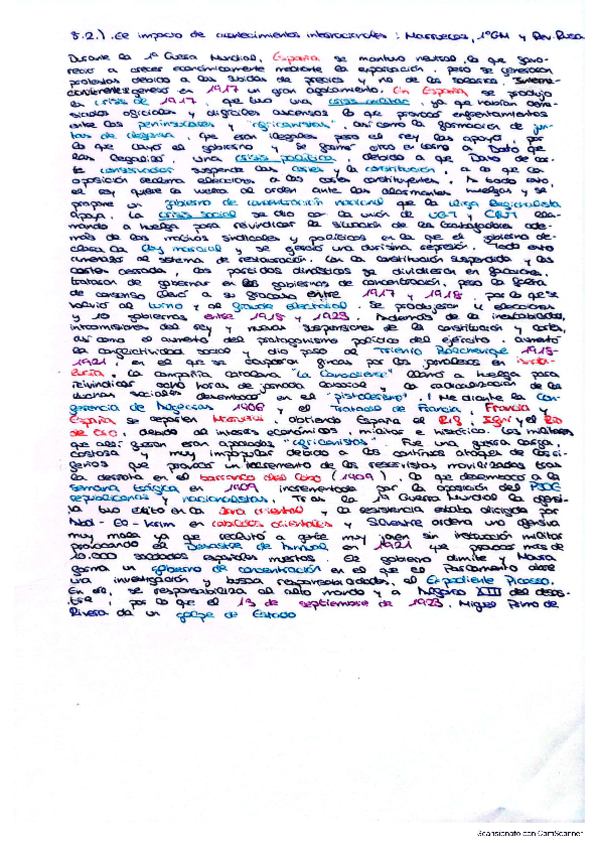 8.2.). El impacto de acontecimientos internacionales: Marruecos, 1ª GM y Rev. Rusa
Durante la 1ª Guerra Mundial, España se mantuvo neutral, lo que favo-
reció a crecer económicamente mediante la exportación, pero se generaron
protestas debido a las subidas de precios y no de los salarios.
en 1917 un gran agotamiento. En España se produjo
la crisis de 1917, que tuvo una crisis militar, ya que habían
oficiales y difíciles ascensos lo que provocó enfrentamientos
entre los peninsulares y "africanistas", así como la formación de jun-
tas de defensa, que eran ilegales pero el rey las apoyó, por
lo que cayó el gobierno y se formó otro en torno a Dato que
las legalizó. Una crisis política, debido a que Dato de cor-
te conservador suspende las cortes y la constitución, a lo que la
oposición reclama elecciones a las cortes constituyentes. A todo esto,
el rey quiere la vuelta al orden ante las alarmantes huelgas y se
propone un gobierno de concentración nacional que la Lliga Regionalista
apoya. La crisis social se dio por la unión de UGT y CNT lla-
mando a huelga para reivindicar la situación de los trabajadores ade-
más de los motivos sindicales y políticos en la que el gobierno de-
clara la ley marcial y se generó una durísima represión. Todo esto
al sistema de restauración. Con la constitución suspendida y las
cortes cerradas, los partidos dinásticos se dividieron en facciones.
trataron de gobernar en los gobiernos de concentración, pero la falta
de consenso llevó a su fracaso entre 1917 y 1918, por lo que se
volvió al turno y al fraude electoral. Se produjeron 4 elecciones
y 10 gobiernos entre 1918 y 1923. Además de la inestabilidad,
intromisiones del rey y nuevas suspensiones de la constitución y cortes,
así como el aumento del protagonismo político del ejército. Aumentó
la conflictividad social y dio paso al Trienio Bolchevique 1918-
1921, en el que se ocuparon fincas por los jornaleros en
. La compañía catalana "La Canadiense" llamó a huelga para
reivindicar ocho horas de jornada laboral y la radicalización de las
luchas sociales desembocó en el "pistolerismo". Mediante la Con-
ferencia de Algeciras 1906 y el Tratado de Francia, Francia y
España se reparten Marruecos, obtiendo España el Rif, Ifni y el Río
de Oro, debido al interés económicos, militar e histórico. Los militares
que allí fueron eran apodados "africanistas". Fue una guerra larga,
costosa y muy impopular debido a los continuos ataques de los rife-
ños que provocó un incremento de los reservistas movilizados tras
la derrota en el barranco del Lobo (1909), lo que desembocó a la
semana trágica en 1909 incrementada por la oposición del PSOE
republicanos y nacionalistas. Tras la 1ª Guerra Mundial la ofensi-
va tuvo éxito en la zona oriental y la resistencia estaba dirigida por
Abd-El-Krim en cabileños orientales y Silvestre ordena una ofensiva
muy mala ya que reclutó a gente muy joven sin instrucción militar
provocando el Desastre de Annual en 1921 que provocó más de
10.000 soldados españoles muertos. El gobierno dimite y Maura
forma un gobierno de concentración en el que el Parlamento abre
una investigación y busca responsabilidades, el Expediente Picasso.
En él, se responsabiliza al alto mando y a Alfonso XIII del desas-
tre, por lo que el 13 de septiembre de 1923, Miguel Primo de
Rivera da un golpe de Estado
Scansionato con CamScanner